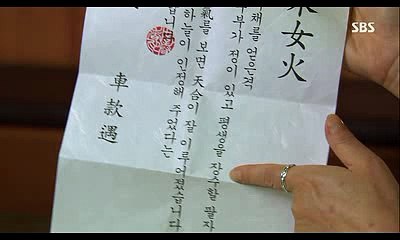 SBS
女火
채를 얻은격
부부가 정이 있고 평생을 장수할 팔자
氣를 보면 天合이 잘 이루어졌습니다
하늘이 인정해 주었다는
니다
車款遇